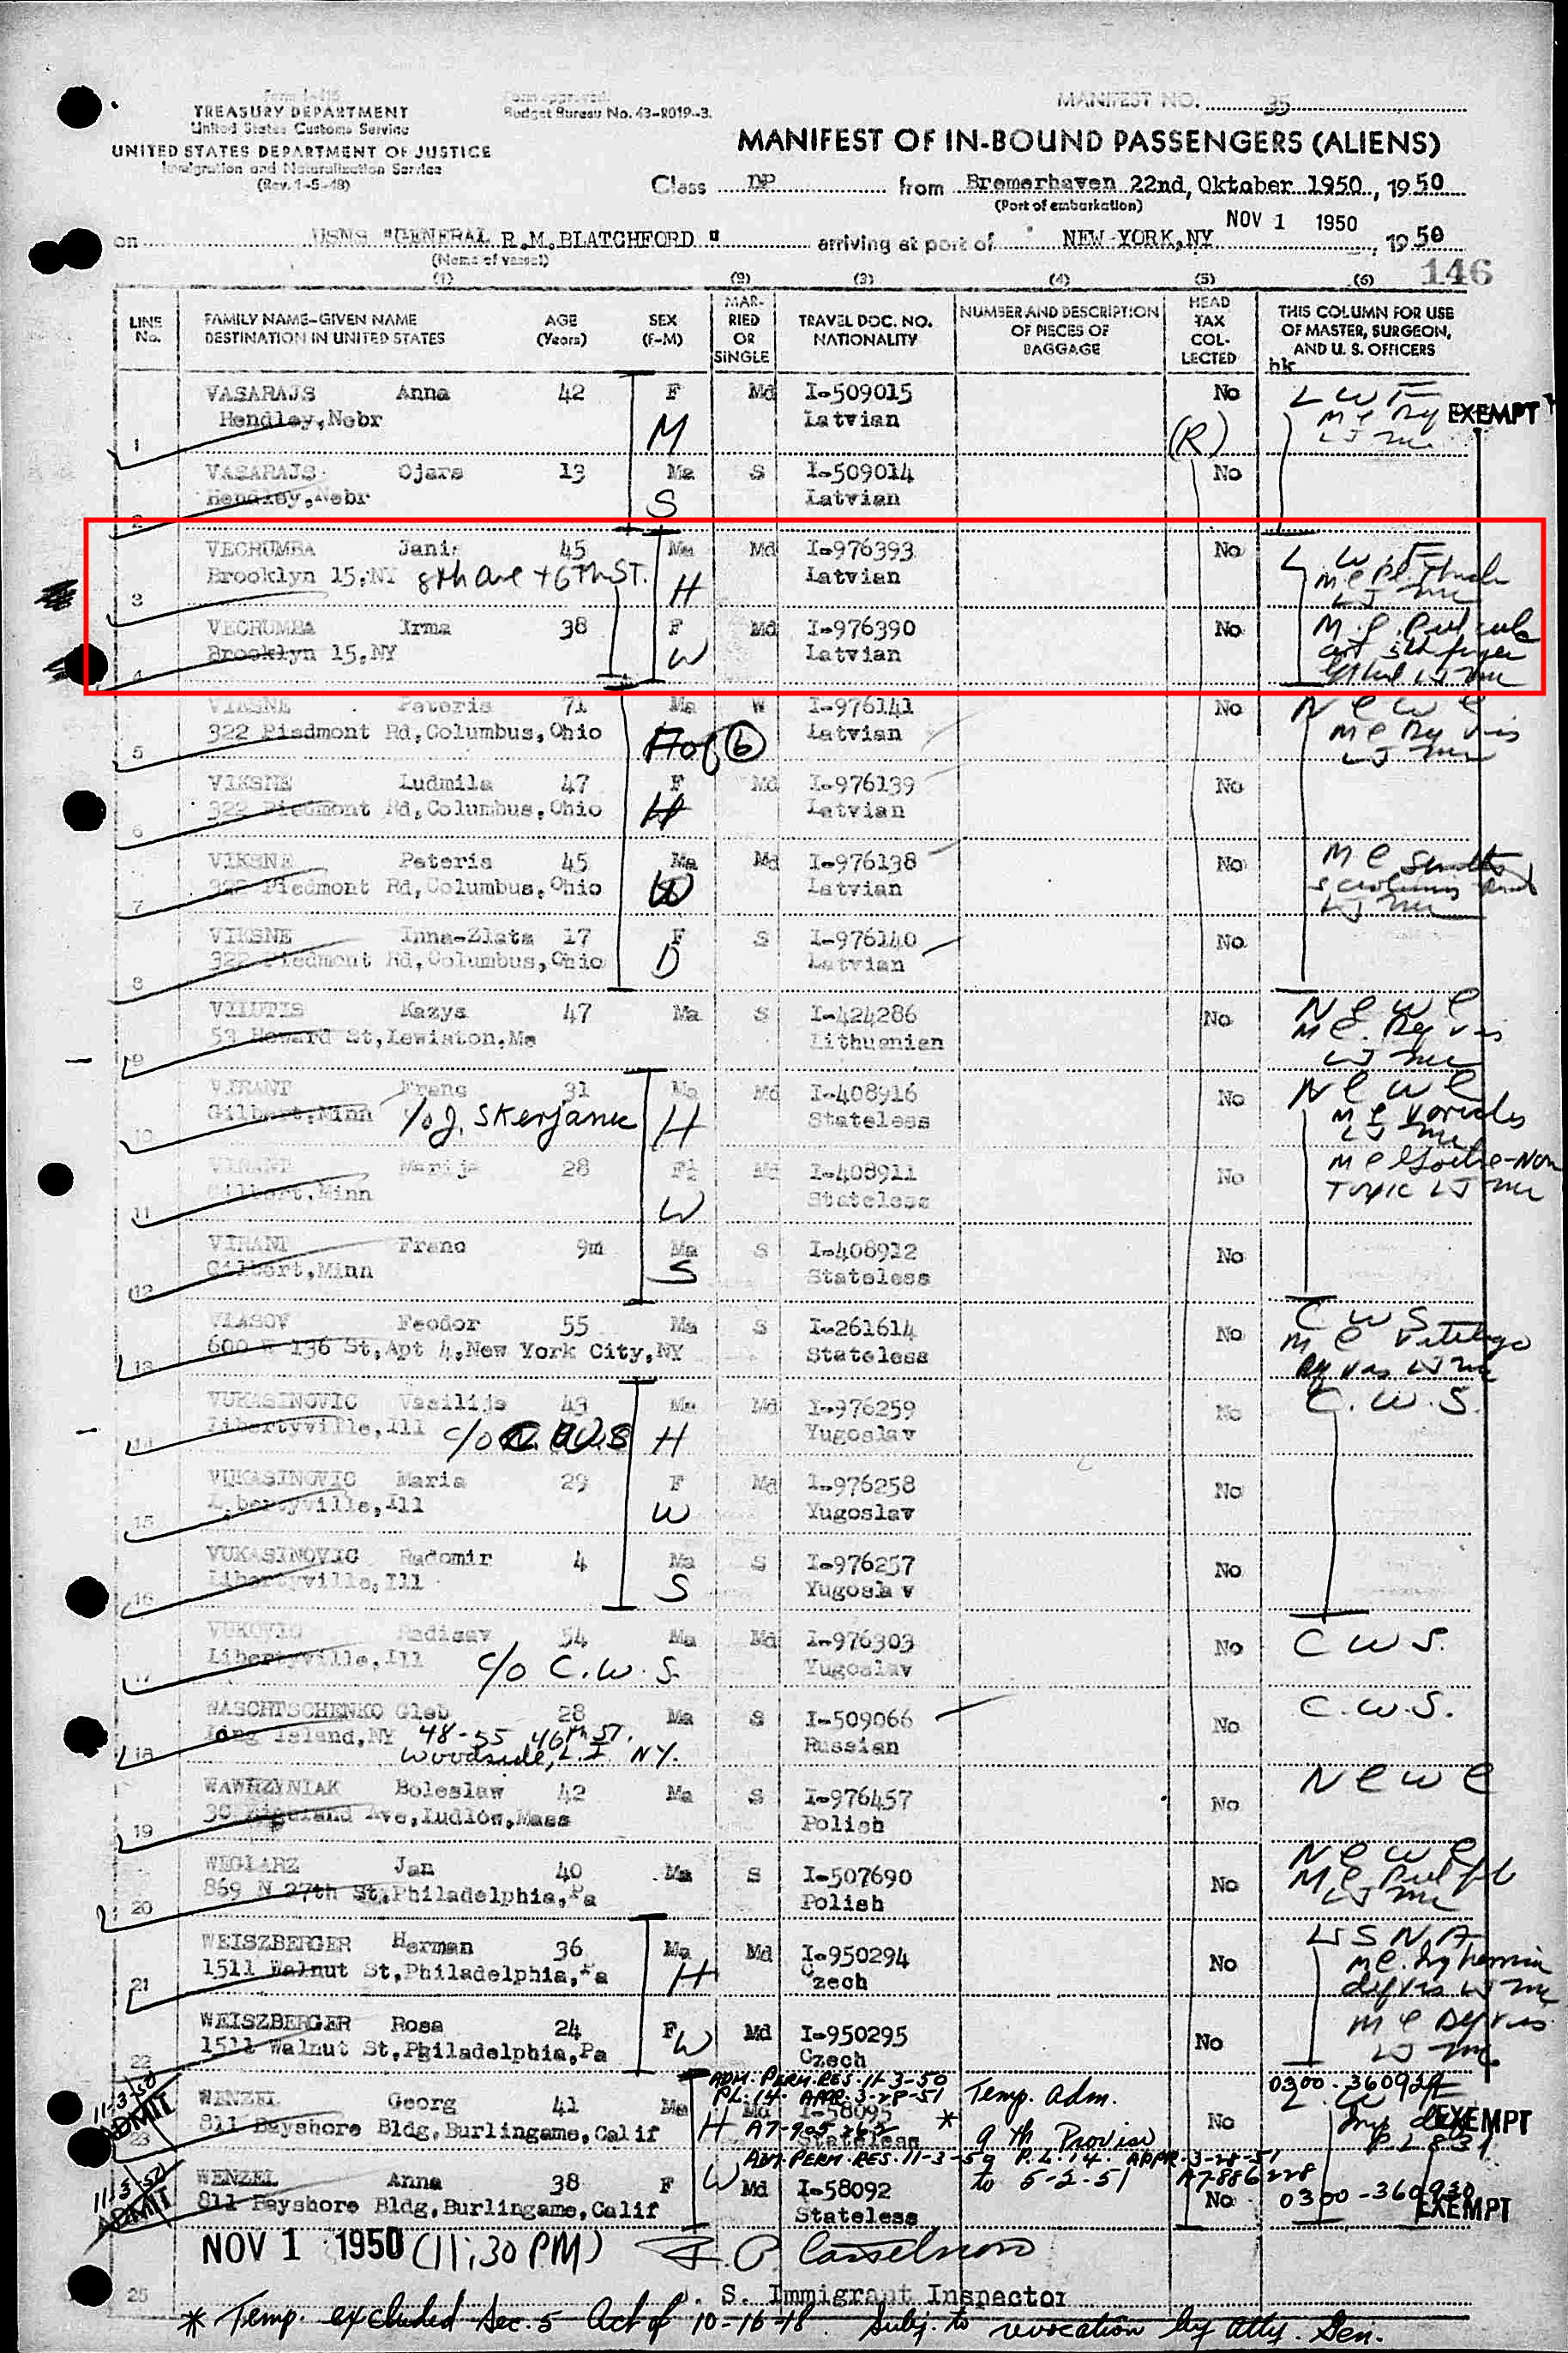 Form I-415
TREASURY DEPARTMENT
United States Customs Service
UNITED STATES DEPARTMENT OF JUSTICE
Immigration and Naturalization Service
(Rev. 1-5-48)
Form approved
Budget Bureau No. 43-R019-3.
MANIFEST NO. 35
MANIFEST OF IN-BOUND PASSENGERS (ALIENS)
Class DP from Bremerhaven 22nd, Oktober 1950, 19 50
(Port of embarkation)
on USNS "GENERAL R.M.BLATCHFORD " arriving at port of NEW YORK,NY NOV 1 1950, 19 50
(Name of vessel)
146
(1) (2) (3) (4) (5) (6)
LINE No. FAMILY NAME-GIVEN NAME DESTINATION IN UNITED STATES AGE (Years) SEX (F-M) MAR-RIED OR SINGLE TRAVEL DOC. NO. NATIONALITY NUMBER AND DESCRIPTION OF PIECES OF BAGGAGE HEAD TAX COL-LECTED THIS COLUMN FOR USE OF MASTER, SURGEON, AND U. S. OFFICERS
hk
VASARAJS Anna 42 F Md I-509015 No L W F
1 Hendley,Nebr M Latvian (R) EXEMPT
VASARAJS Ojars 13 Ma S I-509014 No
2 Hendley,Nebr S Latvian
VECRUMBA Janis 45 Ma Md I-976393 No L W F
3 Brooklyn 15,NY 8th Ave + 6th ST. H Latvian
VECRUMBA Irma 38 F Md I-976390 No
4 Brooklyn 15,NY W Latvian
VIKSNE Peteris 71 Ma W I-976141 No N C W C
5 322 Piedmont Rd,Columbus,Ohio F of (6) Latvian
VIKSNE Ludmila 47 F Md I-976139 No
6 322 Piedmont Rd,Columbus,Ohio Latvian
VIKSNE Peteris 45 Ma Md I-976138 No
7 322 Piedmont Rd,Columbus,Ohio Latvian
VIKSNE Inna-Zlata 17 F S I-976140 No
8 322 Piedmont Rd,Columbus,Ohio D Latvian
VILUTIS Kazys 47 Ma S I-424286 No N C W C
9 53 Howard St,Lewiston,Me Lithuanian
VIRANT Franc 31 Ma Md I-408916 No N C W C
10 Gilbert,Minn c/o J. Skerjanec H Stateless
VIRANT Marija 28 F Md I-408911 No
11 Gilbert,Minn W Stateless
VIRANT Franc 9m Ma S I-408912 No
12 Gilbert,Minn S Stateless
VLASOV Feodor 55 Ma S I-261614 No C W S
13 600 W 136 St,Apt 4,New York City,NY Stateless
VUKASINOVIC Vasilije 43 Ma Md I-976259 No C.W.S.
14 Libertyville,Ill c/o C.W.S H Yugoslav
VUKASINOVIC Maria 29 F Md I-976258 No
15 Libertyville,Ill W Yugoslav
VUKASINOVIC Radomir 4 Ma S I-976257 No
16 Libertyville,Ill S Yugoslav
VUKOVIC Radisav 54 Ma Md I-976303 No C W S.
17 Libertyville,Ill c/o C.W.S. Yugoslav
WASCHTSCHENKO Gleb 28 Ma S I-509066 No C.W.S.
18 Long Island,NY 48-55 46th ST. Russian
Woodside, L.I. NY.
WAWRZYNIAK Boleslaw 42 Ma S I-976457 No N C W C
19 Ave,Ludlow,Mass Polish
WEGLARZ Jan 40 Ma S I-507690 No N C W C
20 869 N 27th St,Philadelphia,Pa Polish
WEISZBERGER Herman 36 Ma Md I-950294 No U S N A
21 1511 Walnut St,Philadelphia,Pa H Czech
WEISZBERGER Rosa 24 F Md I-950295 No
22 1511 Walnut St,Philadelphia,Pa W Czech
ADM. PERM. RES. 11-3-50
P.L. 14. APPR. 3-28-51
11-3-50 ADMIT
WENZEL Georg 41 Ma Md I-58095 * Temp. adm. No 0300-360929
23 811 Bayshore Bldg,Burlingame,Calif H Stateless 9th Proviso EXEMPT
P.L 831
ADM. PERM. RES. 11-3-50 P.L. 14. APPR. 3-28-51
to 5-2-51 A7-886228
11-3-50 ADMIT
WENZEL Anna 38 F W Md I-58092 No 0300-360930
811 Bayshore Bldg,Burlingame,Calif Stateless EXEMPT
NOV 1 1950 (11:30 PM)
25 . S. Immigrant Inspector
* Temp. excluded Sec. 5 Act of 10-16-18. Subj. to revocation by Atty. Gen.